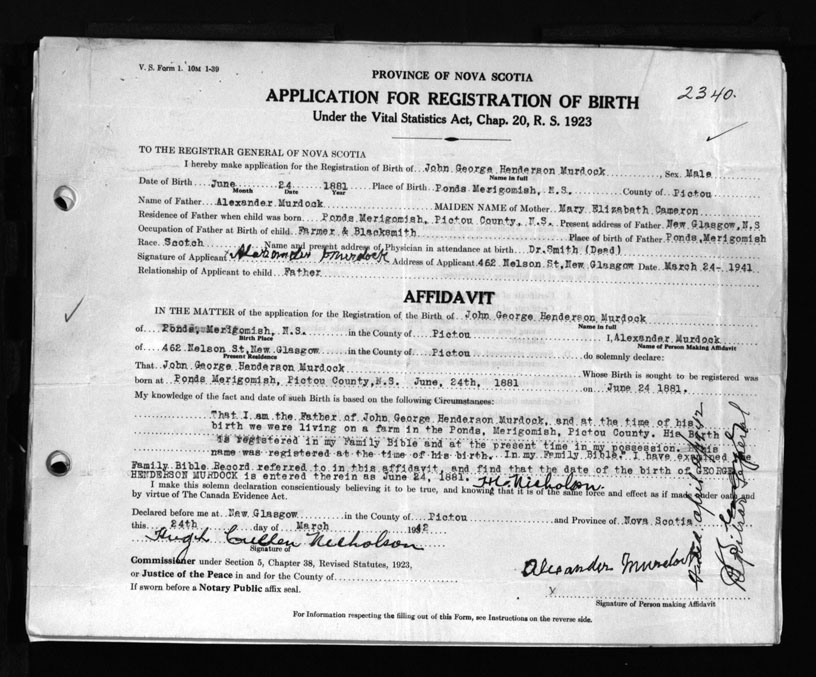 V. S. Form 1. 10M 1-39
PROVINCE OF NOVA SCOTIA
2340.
APPLICATION FOR REGISTRATION OF BIRTH
Under the Vital Statistics Act, Chap. 20, R. S. 1923
TO THE REGISTRAR GENERAL OF NOVA SCOTIA
I hereby make application for the Registration of Birth of John George Henderson Murdock, Sex Male
Name in full
Date of Birth June 24 1881 Place of Birth Ponds Merigomish, N.S. County of Pictou
Month Date Year
Name of Father Alexander Murdock MAIDEN NAME of Mother Mary Elizabath Cameron
Residence of Father when child was born Ponds Merigomish, Pictou County, N.S. Present address of Father New Glasgow, N.S
Occupation of Father at Birth of child Farmer & Blacksmith Place of birth of Father Ponds, Merigomish
Race Scotch Name and present address of Physician in attendance at birth Dr. Smith (Dead)
Signature of Applicant Alexander Murdock Address of Applicant 462 Nelson St, New Glasgow Date March 24- 1941
Relationship of Applicant to child Father
AFFIDAVIT
IN THE MATTER of the application for the Registration of the Birth of John George Henderson Murdock
Name in full
of Ponds, Merigomish, N.S. in the County of Pictou I, Alexander Murdock
Birth Place Name of Person Making Affidavit
of 462 Nelson St, New Glasgow in the County of Pictou do solemnly declare:
Present Residence
That John George Henderson Murdock Whose Birth is sought to be registered was
born at Ponds Merigomish, Pictou County, N.S. June, 24th, 1881 on June 24 1881.
My knowledge of the fact and date of such Birth is based on the following Circumstances:
That I am the Father of John George Henderson Murdock, and at the time of his
birth we were living on a farm in the Ponds, Merigomish, Pictou County. His Birth
is registered in my Family Bible and at the present time in my possession. This
name was registered at the time of his birth. In my Family Bible. I have examined the
Family Bible Record referred to in this affidavit, and find that the date of the birth of GEORGE
HENDERSON MURDOCK is entered therein as June 24, 1881. H. C. Nicholson
I make this solemn declaration conscientiously believing it to be true, and knowing that it is of the same force and effect as if made under oath and
by virtue of The Canada Evidence Act.
Declared before me at New Glasgow in the County of Pictou and Province of Nova Scotia
this 24th day of March 1942
Hugh Cullen Nicholson
Signature of
Commissioner under Section 5, Chapter 38, Revised Statutes, 1923,
or Justice of the Peace in and for the County of
If sworn before a Notary Public affix seal.
Alexander Murdock
X
Signature of Person making Affidavit
For Information respecting the filling out of this Form, see Instructions on the reverse side.